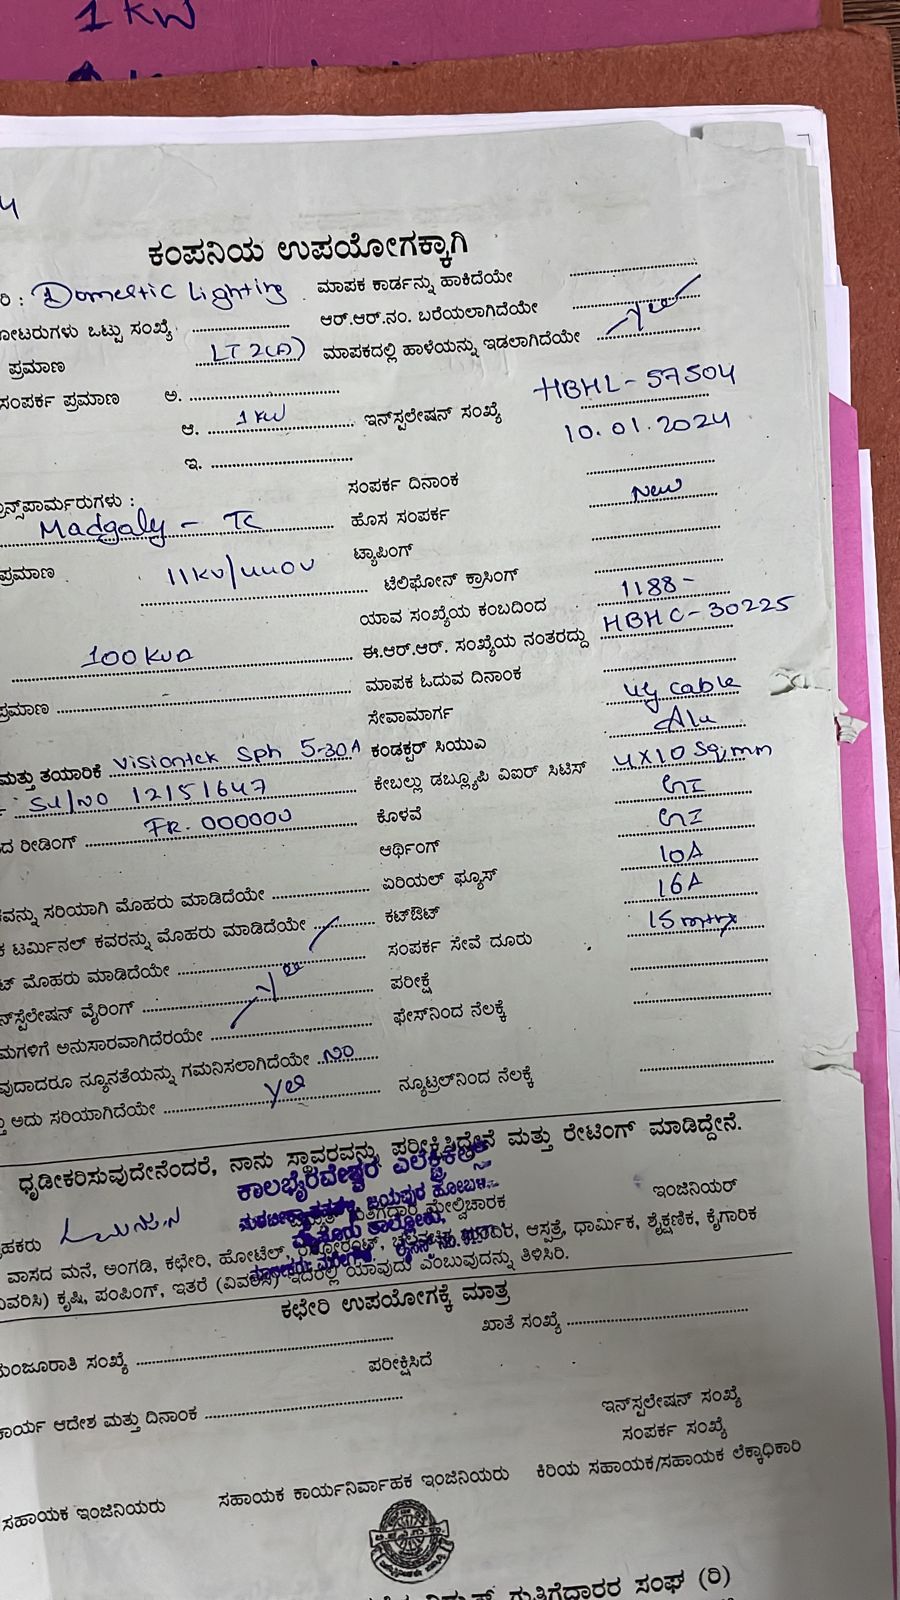 1 KW
4
ಕಂಪನಿಯ ಉಪಯೋಗಕ್ಕಾಗಿ
ರಿ : Domestic Lighting ಮಾಪಕ ಕಾರ್ಡನ್ನು ಹಾಕಿದೆಯೇ
ೋಟರುಗಳು ಒಟ್ಟು ಸಂಖ್ಯೆ ಆರ್.ಆರ್.ನಂ. ಬರೆಯಲಾಗಿದೆಯೇ
ಪ್ರಮಾಣ LT 2(A) ಮಾಪಕದಲ್ಲಿ ಹಾಳೆಯನ್ನು ಇಡಲಾಗಿದೆಯೇ Yes
ಸಂಪರ್ಕ ಪ್ರಮಾಣ ಅ.
ಆ. 1 KW ಇನ್‌ಸ್ಪಲೇಷನ್ ಸಂಖ್ಯೆ HBHL-57504
ಇ. 10.01.2024
ಸಂಪರ್ಕ ದಿನಾಂಕ
ಾನ್ಸ್‌ಪಾರ್ಮರುಗಳು :
Madgaly - TC ಹೊಸ ಸಂಪರ್ಕ New
ಪ್ರಮಾಣ 11KV/440V ಟ್ಯಾಪಿಂಗ್
ಟೆಲಿಫೋನ್ ಕ್ರಾಸಿಂಗ್
ಯಾವ ಸಂಖ್ಯೆಯ ಕಂಬದಿಂದ 1188-
100 KVA ಈ.ಆರ್.ಆರ್. ಸಂಖ್ಯೆಯ ನಂತರದ್ದು HBHC-30225
ಪ್ರಮಾಣ ಮಾಪಕ ಓದುವ ದಿನಾಂಕ
ಸೇವಾಮಾರ್ಗ UG cable
ಮತ್ತು ತಯಾರಿಕೆ Visiontek Sph 5-30A ಕಂಡಕ್ಟರ್ ಸಿಯುಎ Alu
Sl/NO 12151647 ಕೇಬಲ್ಲು ಡಬ್ಲ್ಯೂಪಿ ವಿಐರ್ ಸಿಟಿಸ್ 4X10 Sq,mm
ದ ರೀಡಿಂಗ್ FR. 000000 ಕೊಳವೆ GI
ಆರ್ಥಿಂಗ್ GI
ವನ್ನು ಸರಿಯಾಗಿ ಮೊಹರು ಮಾಡಿದೆಯೇ ಏರಿಯಲ್ ಫ್ಯೂಸ್ 10A
ಕ ಟರ್ಮಿನಲ್ ಕವರನ್ನು ಮೊಹರು ಮಾಡಿದೆಯೇ ಕಟ್‌ಔಟ್ 16A
ಟ್ ಮೊಹರು ಮಾಡಿದೆಯೇ ಸಂಪರ್ಕ ಸೇವೆ ದೂರು 15 mtrs
ನ್‌ಸ್ಪೆಲೇಷನ್ ವೈರಿಂಗ್ Yes ಪರೀಕ್ಷೆ
ಮಗಳಿಗೆ ಅನುಸಾರವಾಗಿದೆರಯೇ ಫೇಸ್‌ನಿಂದ ನೆಲಕ್ಕೆ
ವುದಾದರೂ ನ್ಯೂನತೆಯನ್ನು ಗಮನಿಸಲಾಗಿದೆಯೇ No
ು ಅದು ಸರಿಯಾಗಿದೆಯೇ Yes ನ್ಯೂಟ್ರಲ್‌ನಿಂದ ನೆಲಕ್ಕೆ
ಧೃಡೀಕರಿಸುವುದೇನೆಂದರೆ, ನಾನು ಸ್ಥಾವರವನ್ನು ಪರೀಕ್ಷಿಸಿದ್ದೇನೆ ಮತ್ತು ರೇಟಿಂಗ್ ಮಾಡಿದ್ದೇನೆ.
ಕಾಲಭೈರವೇಶ್ವರ ಎಲೆಕ್ಟ್ರಿಕಲ್ಸ್
ಜಯಪುರ ಹೋಬಳಿ
ಮೈಸೂರು ತಾಲ್ಲೂಕು,
ಹಕರು ಮೇಲ್ವಿಚಾರಕ ಇಂಜಿನಿಯರ್
ವಾಸದ ಮನೆ, ಅಂಗಡಿ, ಕಛೇರಿ, ಹೋಟೆಲ್, ಆಸ್ಪತ್ರೆ, ಧಾರ್ಮಿಕ, ಶೈಕ್ಷಣಿಕ, ಕೈಗಾರಿಕ
ವಿವರಿಸಿ) ಕೃಷಿ, ಪಂಪಿಂಗ್, ಇತರೆ (ವಿವರಿಸಿ) ಇದರಲ್ಲಿ ಯಾವುದು ಎಂಬುವುದನ್ನು ತಿಳಿಸಿರಿ.
ಕಛೇರಿ ಉಪಯೋಗಕ್ಕೆ ಮಾತ್ರ
ಮಂಜೂರಾತಿ ಸಂಖ್ಯೆ ಖಾತೆ ಸಂಖ್ಯೆ
ಪರೀಕ್ಷಿಸಿದೆ
ಕಾರ್ಯ ಆದೇಶ ಮತ್ತು ದಿನಾಂಕ ಇನ್‌ಸ್ಪಲೇಷನ್ ಸಂಖ್ಯೆ
ಸಂಪರ್ಕ ಸಂಖ್ಯೆ
ಸಹಾಯಕ ಇಂಜಿನಿಯರು ಸಹಾಯಕ ಕಾರ್ಯನಿರ್ವಾಹಕ ಇಂಜಿನಿಯರು ಕಿರಿಯ ಸಹಾಯಕ/ಸಹಾಯಕ ಲೆಕ್ಕಾಧಿಕಾರಿ
ಗುತ್ತಿಗೆದಾರರ ಸಂಘ (ರಿ)